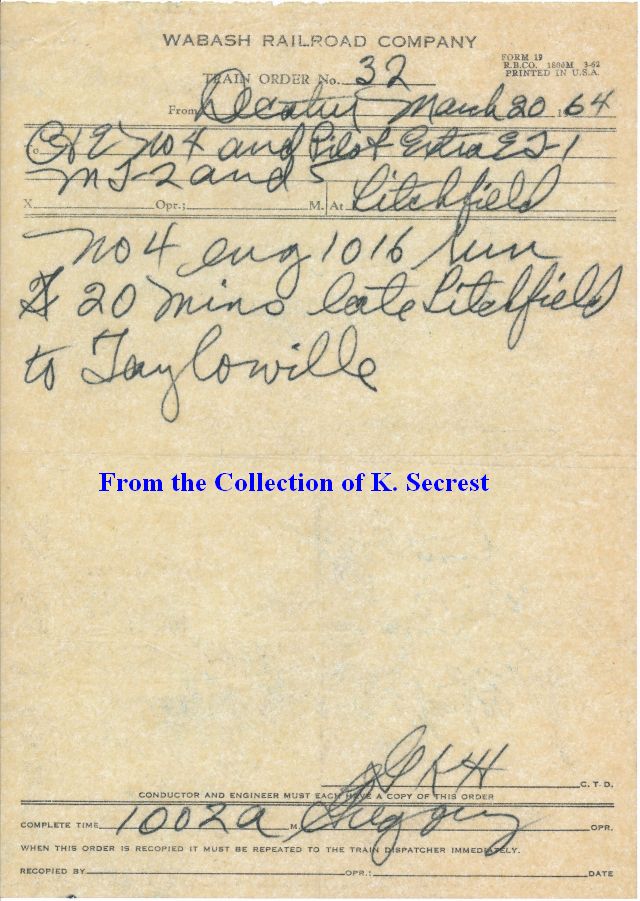 WABASH RAILROAD COMPANY
FORM 19
R.B.CO. 1800M 3-62
PRINTED IN U.S.A.
TRAIN ORDER No. 32
From Decatur March 20 1964
To C&E No 4 and Pilot Extra
and
X Opr.; M. At Litchfield
No 4 eng 1016 run
20 mins late Litchfield
to Taylorville
From the Collection of K. Secrest
C.T.D.
CONDUCTOR AND ENGINEER MUST EACH HAVE A COPY OF THIS ORDER
COMPLETE TIME 1002a M. Gregory OPR.
WHEN THIS ORDER IS RECOPIED IT MUST BE REPEATED TO THE TRAIN DISPATCHER IMMEDIATELY.
RECOPIED BY OPR.: DATE